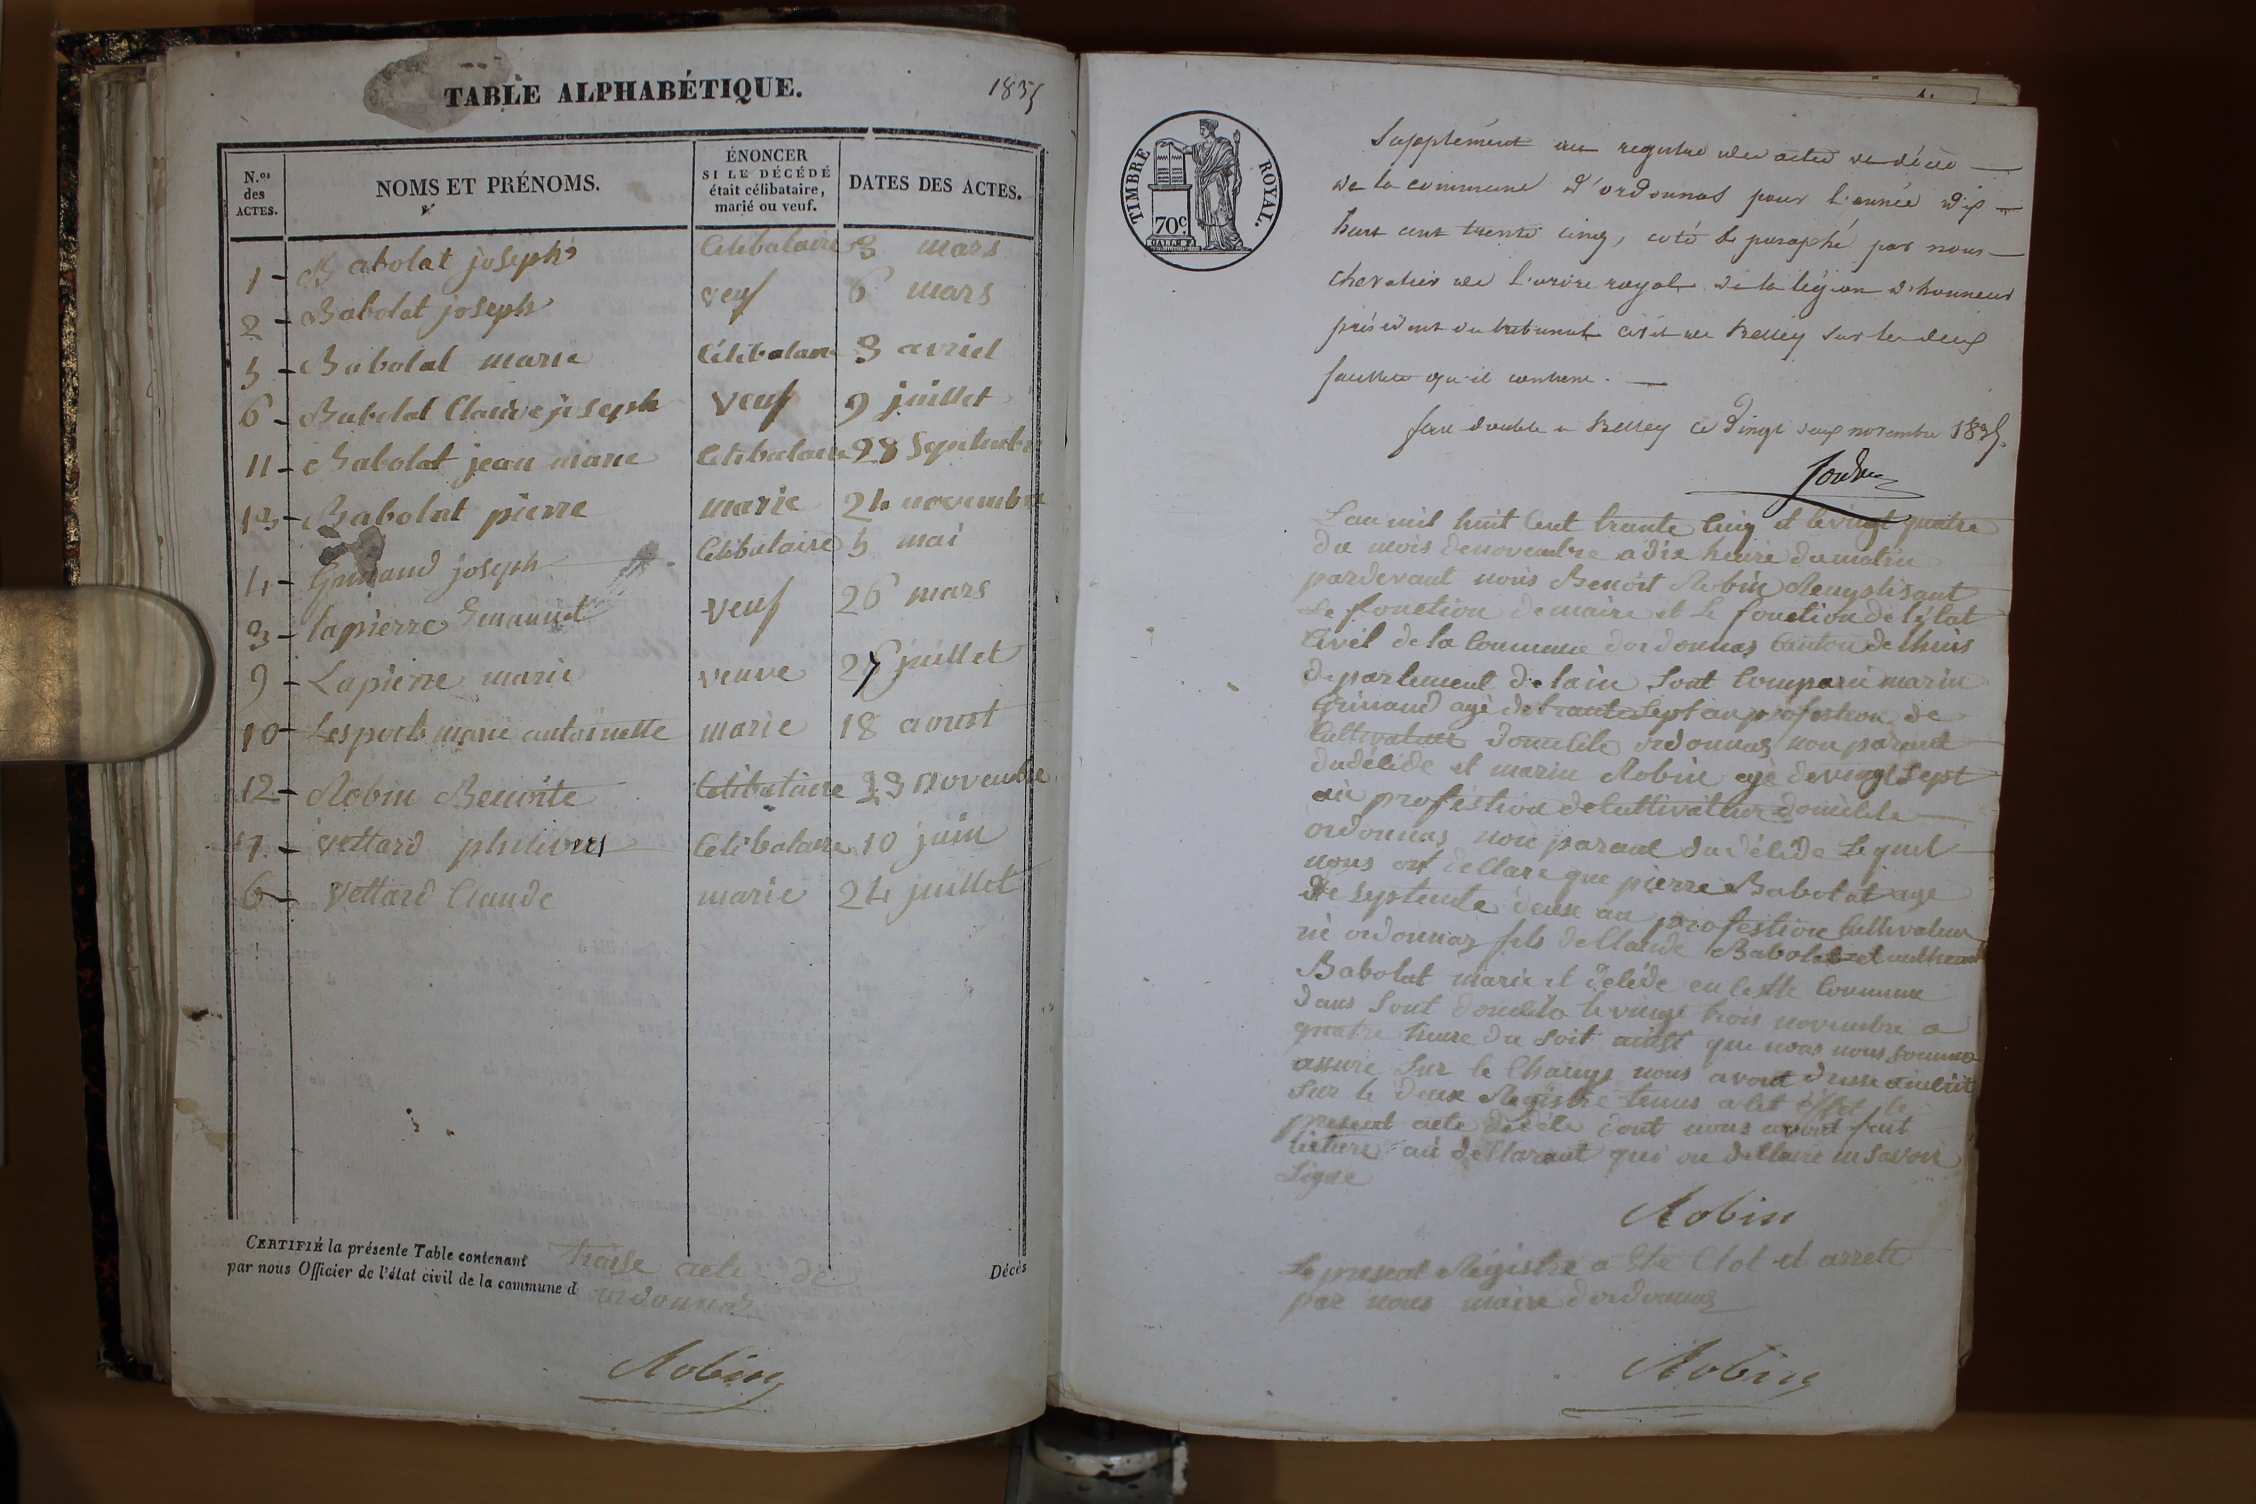 TABLE ALPHABÉTIQUE.
1835
N.os des ACTES.
NOMS ET PRÉNOMS.
ÉNONCER SI LE DÉCÉDÉ était célibataire, marié ou veuf.
DATES DES ACTES.
1 - Babolat joseph Celibataire 3 mars
2 - Babolat joseph veuf 6 mars
5 - Babolat marie Célibataire 3 avriel
6 - Babolat Claude joseph veuf 9 juillet
11 - Babolat jean marie Celibataire 28 Septembre
13 - Babolat pierre marie 24 novembre
4 - Guinand joseph Celibataire 5 mai
3 - Lapierre Emanuel veuf 26 mars
9 - Lapierre marie veuve juillet
10 - marie antoinette marie 18 aoust
12 - Robin Benoite Celibataire 23 Novembre
7 - Vettard philibert Celibataire 10 juin
6 - Vettard Claude marie 24 juillet
CERTIFIÉ la présente Table contenant traise acte de Décès
par nous Officier de l'état civil de la commune d ordonnaz
Robin
TIMBRE ROYAL.
70c
Supplément au registre des actes de décès
de la commune d'ordonnas pour l'année dix
huit cent trente cinq, coté & paraphé par nous
chevalier de l'ordre royal de la légion d'honneur
président du tribunal civil de Belley sur les deux
feuillets qu'il contient.
fait double a Belley ce vingt deux novembre 1835.
L'an mil huit Cent trante Cinq et le vingt quatre
du mois de novembre a dix heure du matin
pardevant nous Benoit Robin Remplisant
Le fonction de maire et Le fonction de l'état
Civil de la Commune dordonnas Canton de lhuis
departement de lain Sont Comparu marin
Guinand agé de trante Sept an profession de
Cultivateur domicile ordonnas non parent
du décide et marin Robin agé de vingt Sept
an profestion de Cultivateur domicile
ordonnas non parant du décide Lequel
nous ont dellare que pierre Babolat age
de septente deux an profestion Cultivateur
né ordonnaz fils de Claude Babolat et
Babolat marie et décéde en Cette Commune
dans Sont domicile le vingt trois novembre a
quatre heure du soit ainsi que nous nous somme
assuré Sur le Champ nous avont dusse
Sur le deux Registre tenus a Cet effet le
present acte décéde dont nous avont fait
lecture au dellarant qui on dellaré ne savoir
Signe
Robin
Le present Régistre a Ete Clot et arrete
par nous maire dordonnas
Robin